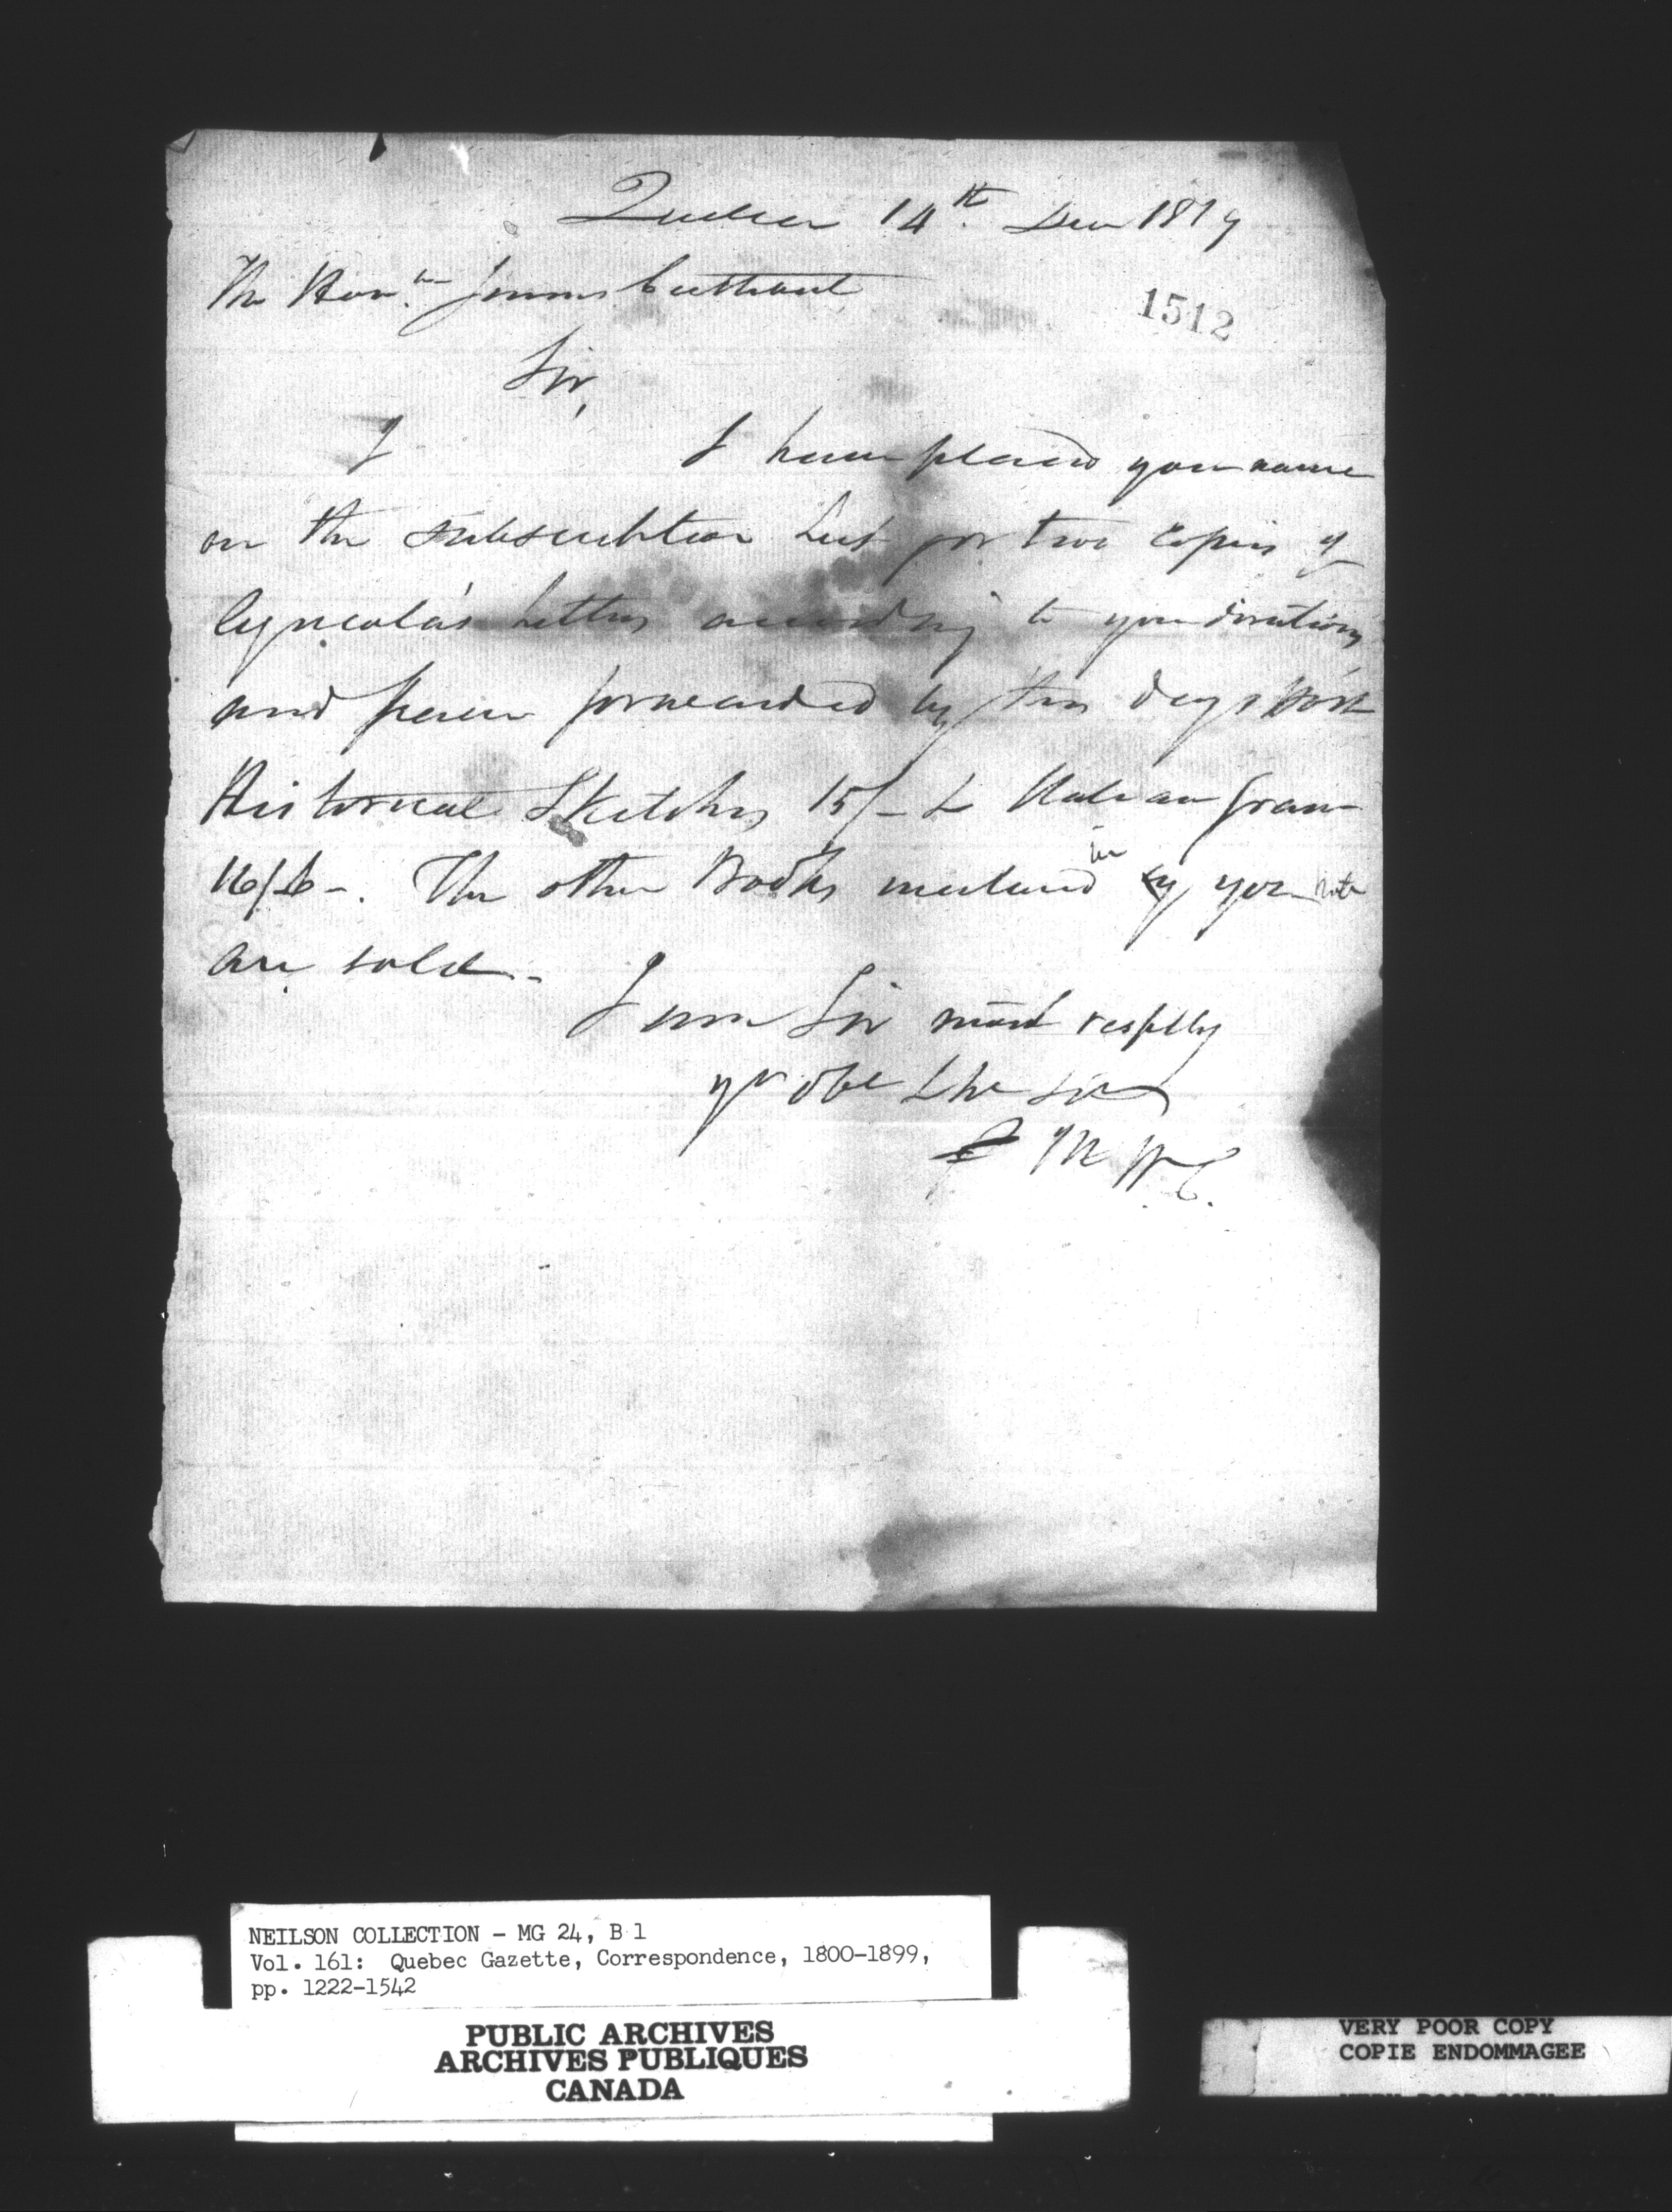 Quebec 14th. Dec 1819
The Honble James Cuthbert
1512
Sir,
I
I have placed your name
on the subscribtion List for two Copies of
Agricola's Letters according to your directions
and have forwarded by this days Post
Historical Sketches 15/- &
16/6-. The other Books mentiond in by your note
are sold.-
I am Sir most respflly
yr obt & he Svt
NEILSON COLLECTION - MG 24, B 1
Vol. 161: Quebec Gazette, Correspondence, 1800-1899,
pp. 1222-1542
PUBLIC ARCHIVES
ARCHIVES PUBLIQUES
CANADA
VERY POOR COPY
COPIE ENDOMMAGEE